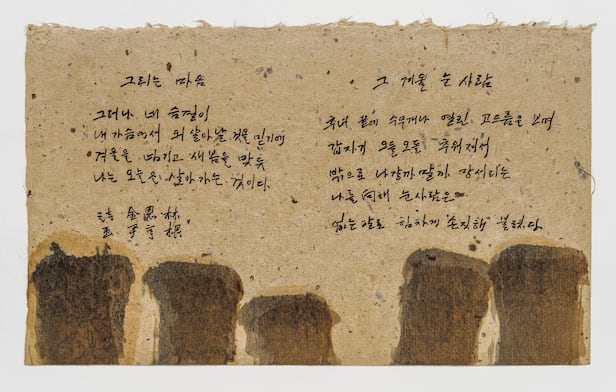 그리는 마음
그러나 네 숨결이
내 가슴에서 되살아날 것을 믿기에
겨울을 넘기고 새봄을 맞듯
나는 오늘을 살아가는 것이다.
詩 金恩林
그 겨울 눈사람
추녀 끝에 수우개나 열린 고드름을 보며
갑자기 오들오들 추워져서
밖으로 나갈까 말까 망서리는
나를 向해 눈사람은
없는 팔로 힘차게 손짓해 불렀다.